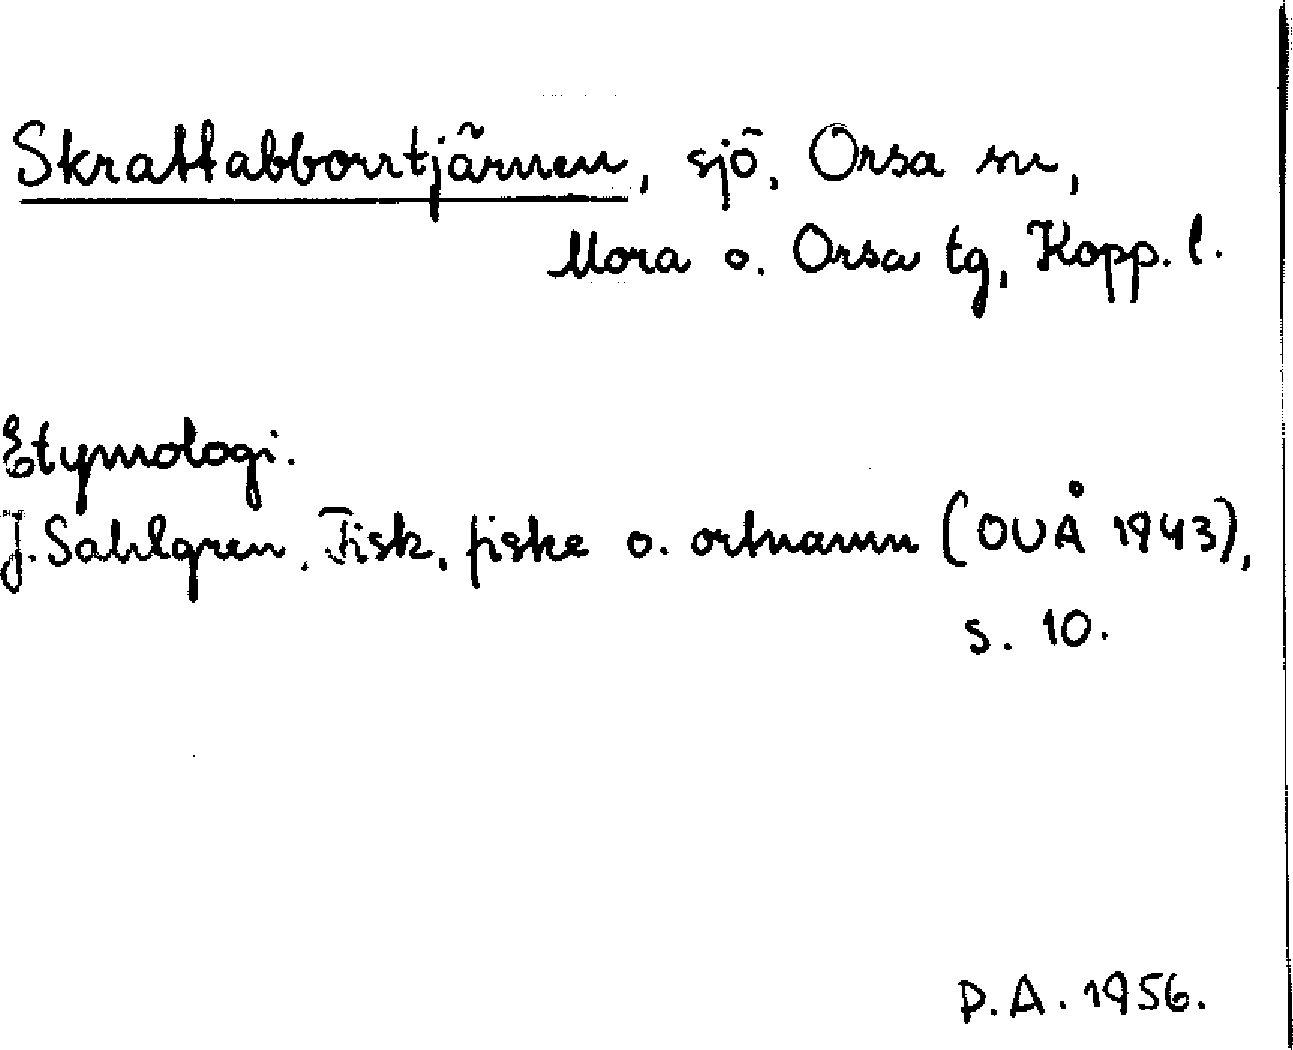 Skrattabborrtjärnen, sjö, Orsa sn,
Mora o. Orsa tg, Kopp. l.
Etymologi.
J. Sahlgren, Fisk, fiske o. ortnamn (OUÅ 1943),
s. 10.
P.A. 1956.